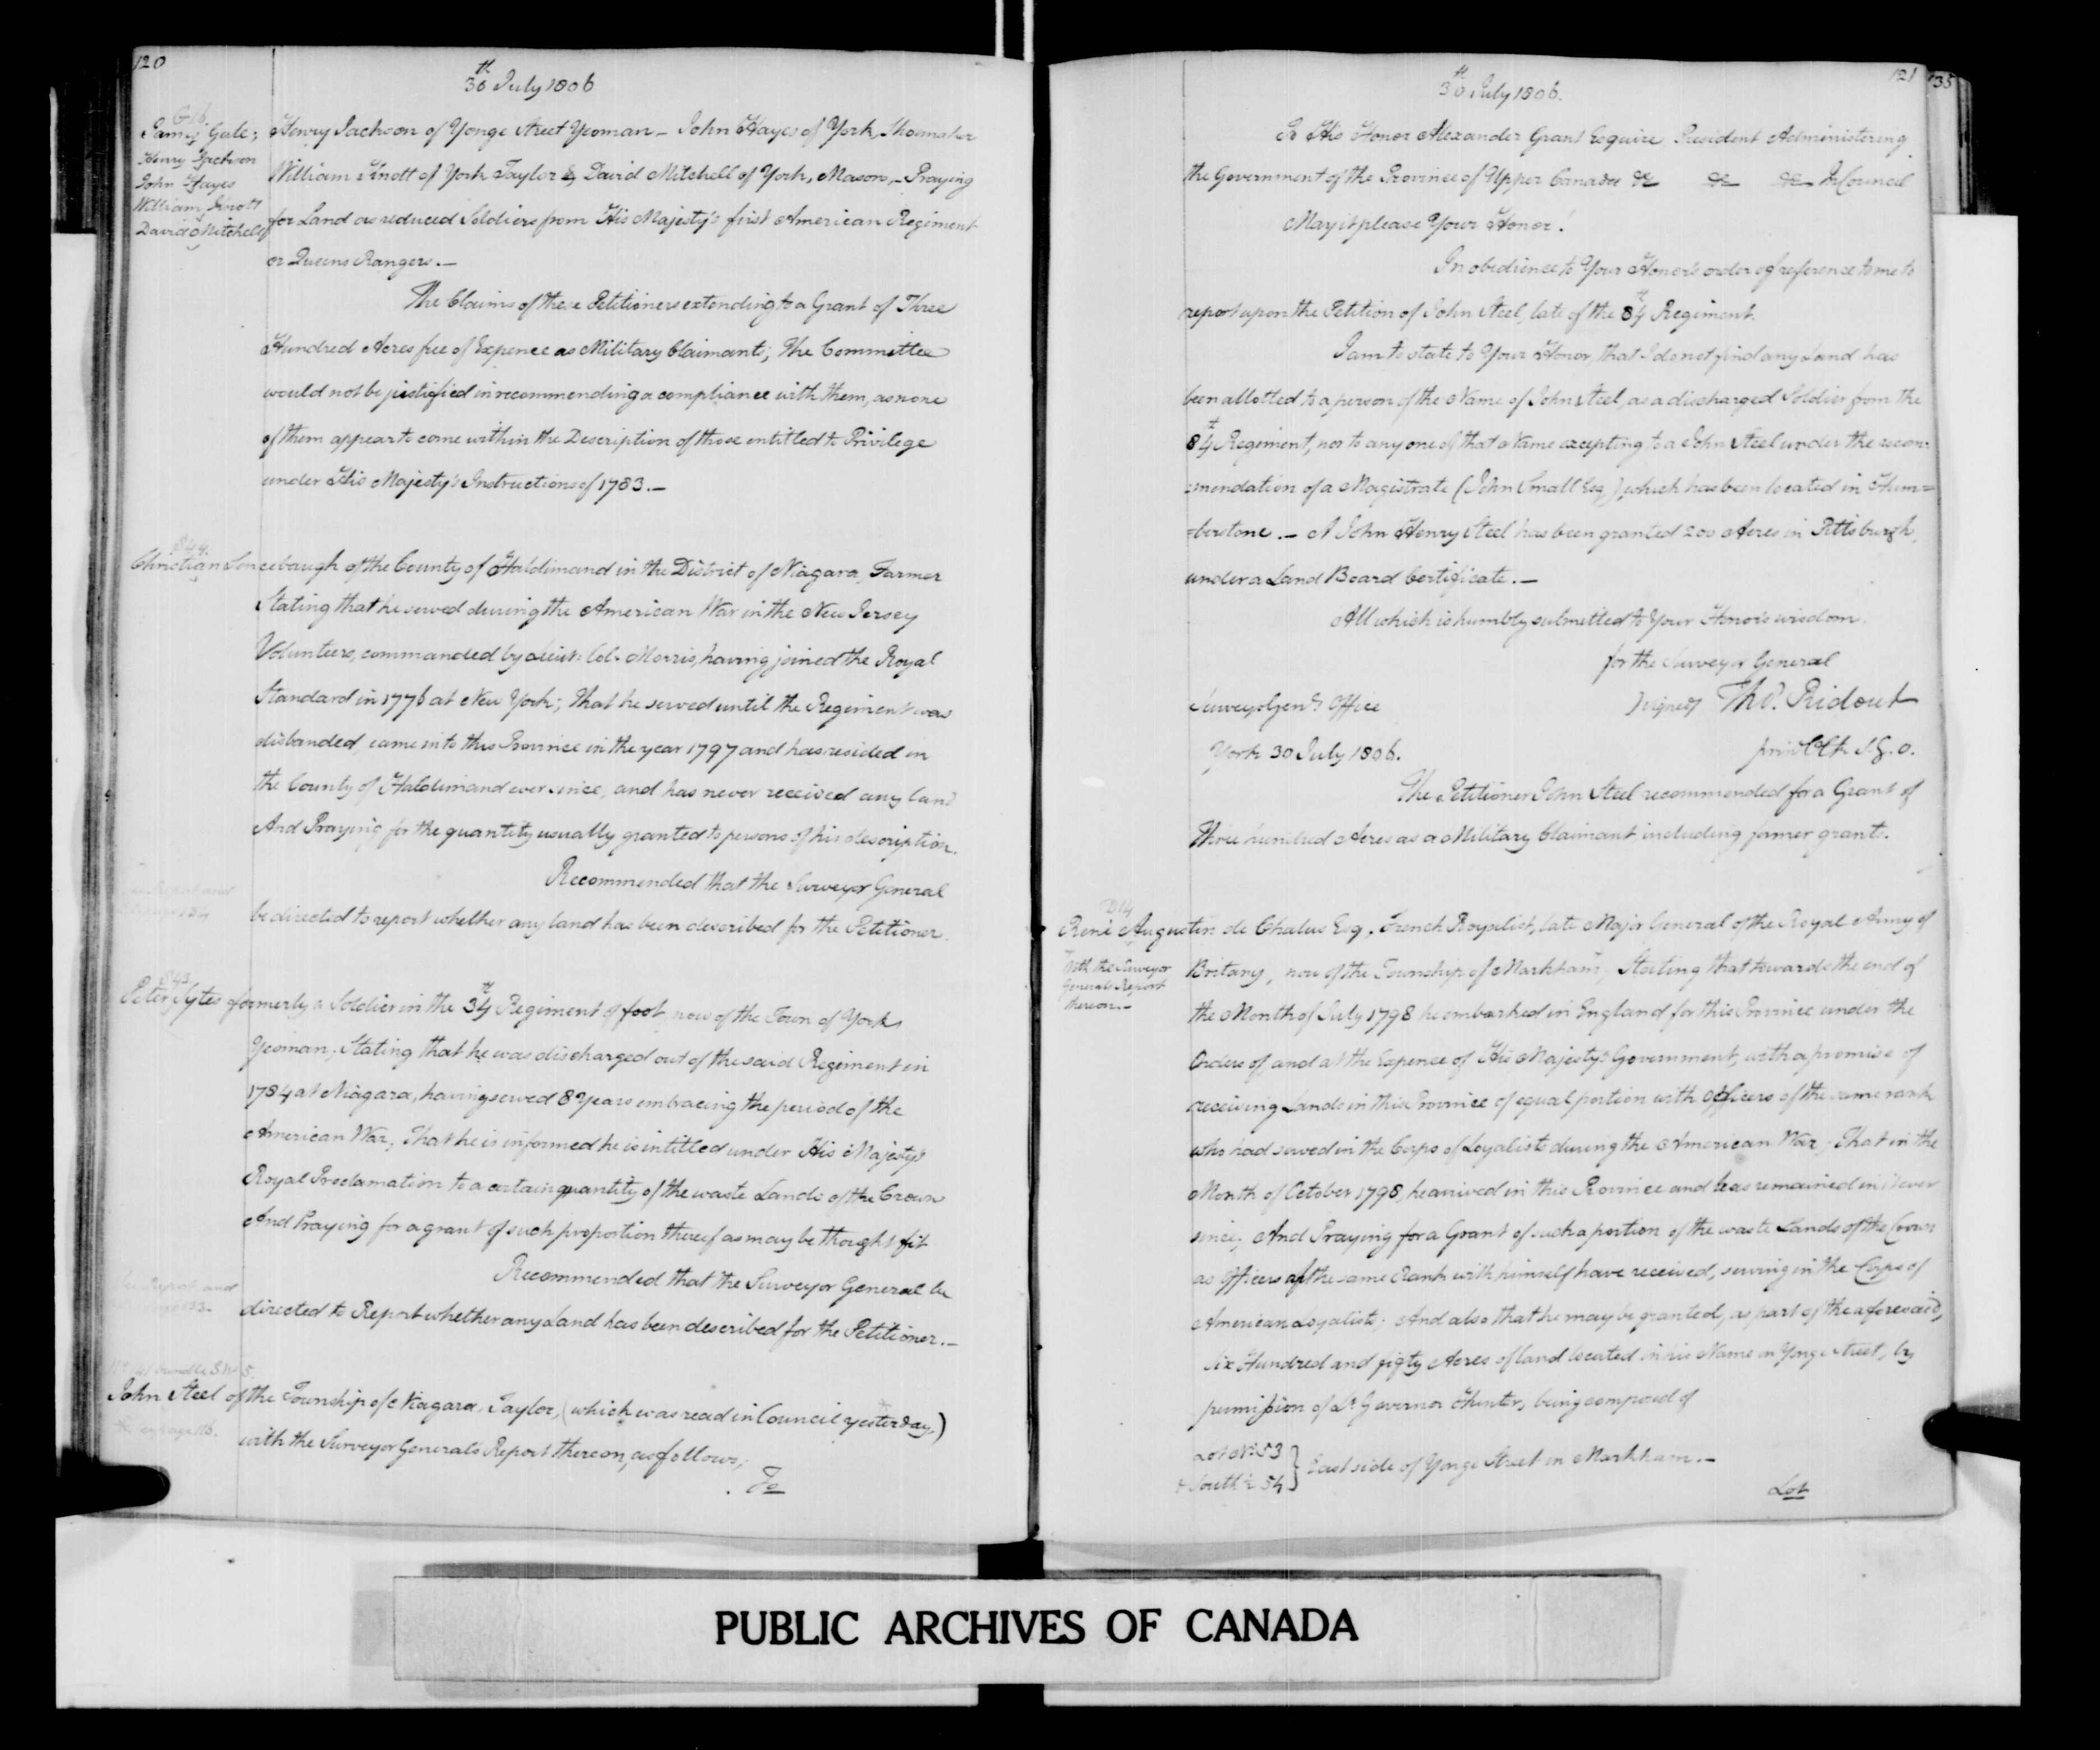 120
30th July 1806
G16.
James Gale;
Henry Jackson
John Hayes
William Knott
&
David Mitchell
Henry Jackson of Yonge Street Yeoman - John Hayes of York, Shoemaker
William Knott of York Taylor & David Mitchell of York, Mason, - Praying
for Land as reduced Soldiers from His Majesty's first American Regiment
or Queens Rangers. -
The Claims of these Petitioners extending to a Grant of Three
Hundred Acres free of Expence as Military Claimants; The Committee
would not be justified in recommending a compliance with them, as none
of them appear to come within the Description of those entitled to Privilege
under His Majesty's Instructions of 1783. -
S44.
Christian Soncebaugh of the County of Haldimand in the District of Niagara, Farmer
Stating that he served during the American War in the New Jersey
Volunteers, commanded by Lieut: Col: Morris, having joined the Royal
Standard in 1776 at New York; That he served until the Regiment was
disbanded, came into this Province in the year 1797 and has resided in
the County of Haldimand ever since, and has never received any land
And Praying for the quantity usually granted to persons of his description.
Recommended that the Surveyor General
be directed to report whether any land has been described for the Petitioner.
S43
Peter Sytes formerly a Soldier in the 34th Regiment of foot, now of the Town of York
Yeoman; Stating that he was discharged out of the said Regiment in
1784 at Niagara, having served 8 Years embracing the period of the
American War; That he is informed he is intitled under His Majesty's
Royal Proclamation to a certain quantity of the waste Lands of the Crown
And Praying for a grant of such proportion thereof as may be thought fit
Recommended that the Surveyor General be
directed to Report whether any Land has been described for the Petitioner. -
John Steel of the Township of Niagara, Taylor, (which was read in Council yesterday,)
with the Surveyor General's Report thereon, as follows;
To
121
135
30th July 1806.
To His Honor Alexander Grant Esquire President Administering
the Government of the Province of Upper Canada &c &c &c In Council
May it please Your Honor!
In obedience to Your Honor's order of reference to me to
report upon the Petition of John Steel, late of the 84th Regiment.
I am to state to Your Honor, that I do not find any Land has
been allotted to a person of the Name of John Steel, as a discharged Soldier from the
84th Regiment, nor to any one of that Name excepting to a John Steel under the recom=
=mendation of a Magistrate (John Small Esq.), which has been located in Hum=
=berstone. - A John Henry Steel has been granted 200 Acres in Pittsburgh,
under a Land Board Certificate. -
All which is humbly submitted to Your Honor's wisdom.
for the Surveyor General
Signed Thos. Ridout
Surveyor Genl's Office
York 30 July 1806.
The Petitioner John Steel recommended for a Grant of
Three hundred Acres as a Military Claimant including former grants.
D14
René Augustin de Chalus Esq. French Royalist, late Major General of the Royal Army of
With the Surveyor
General's Report
thereon. -
Britany, now of the Township of Markham; Stating that towards the end of
the Month of July 1798 he embarked in England for this Province under the
Orders of, and at the Expence of His Majesty's Government, with a promise of
receiving Lands in this Province of equal portion with Officers of the same rank
who had served in the Corps of Loyalists during the American War; That in the
Month of October 1798, he arrived in this Province and has remained in it ever
since; And Praying for a Grant of such a portion of the waste Lands of the Crown
as Officers of the same Rank with himself have received, serving in the Corps of
American Loyalists; And also that he may be granted, as part of the aforesaid,
Six Hundred and fifty Acres of land located in his Name on Yonge Street, by
permission of Lt Governor Hunter, being composed of
Lot No 53
& South ½ 54 } East side of Yonge Street in Markham. -
Lot
PUBLIC ARCHIVES OF CANADA